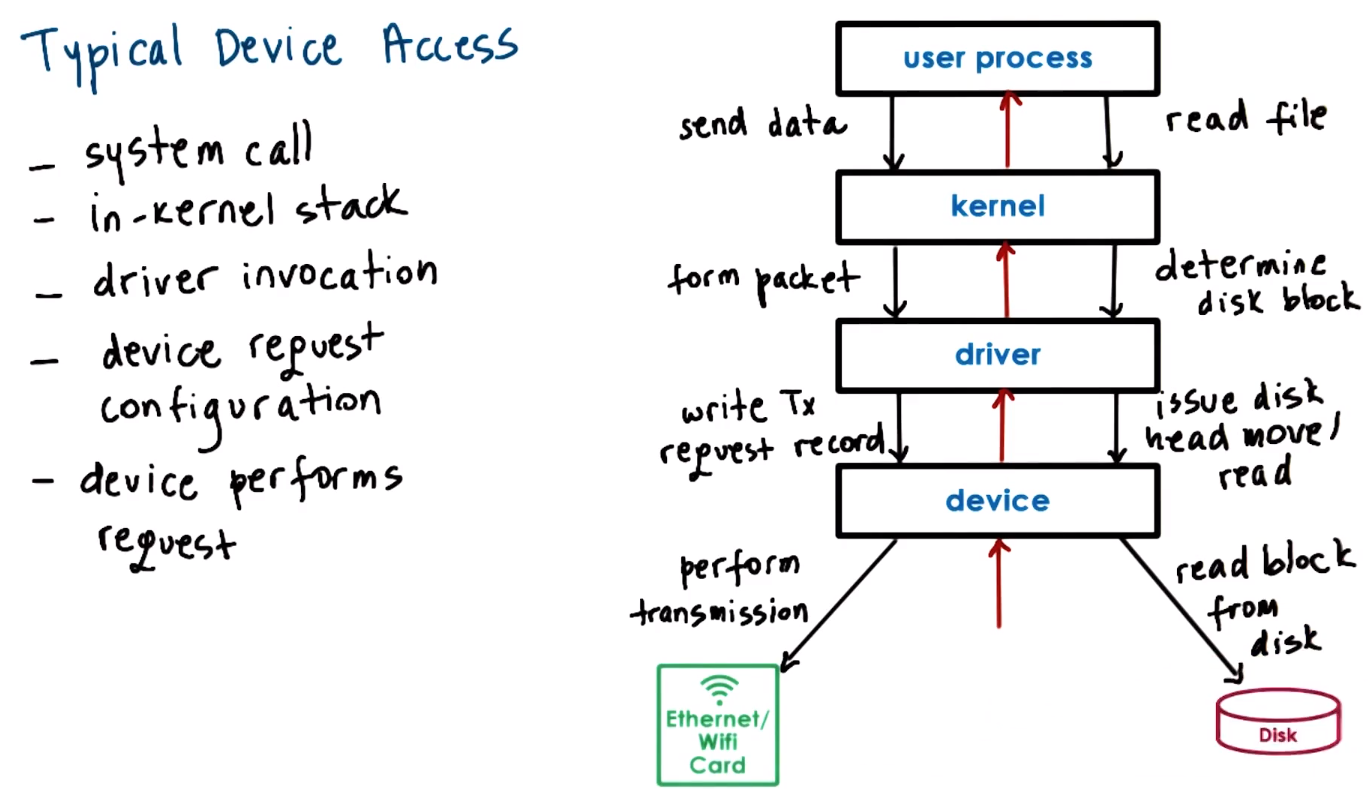 Typical Device Access
- system call
- in-kernel stack
- driver invocation
- device request
configuration
- device performs
request
user process
send data
read file
kernel
form packet
determine
disk block
driver
write Tx
request record
issue disk
head move/
read
device
perform
transmission
read block
from
disk
Ethernet/
Wifi
Card
Disk